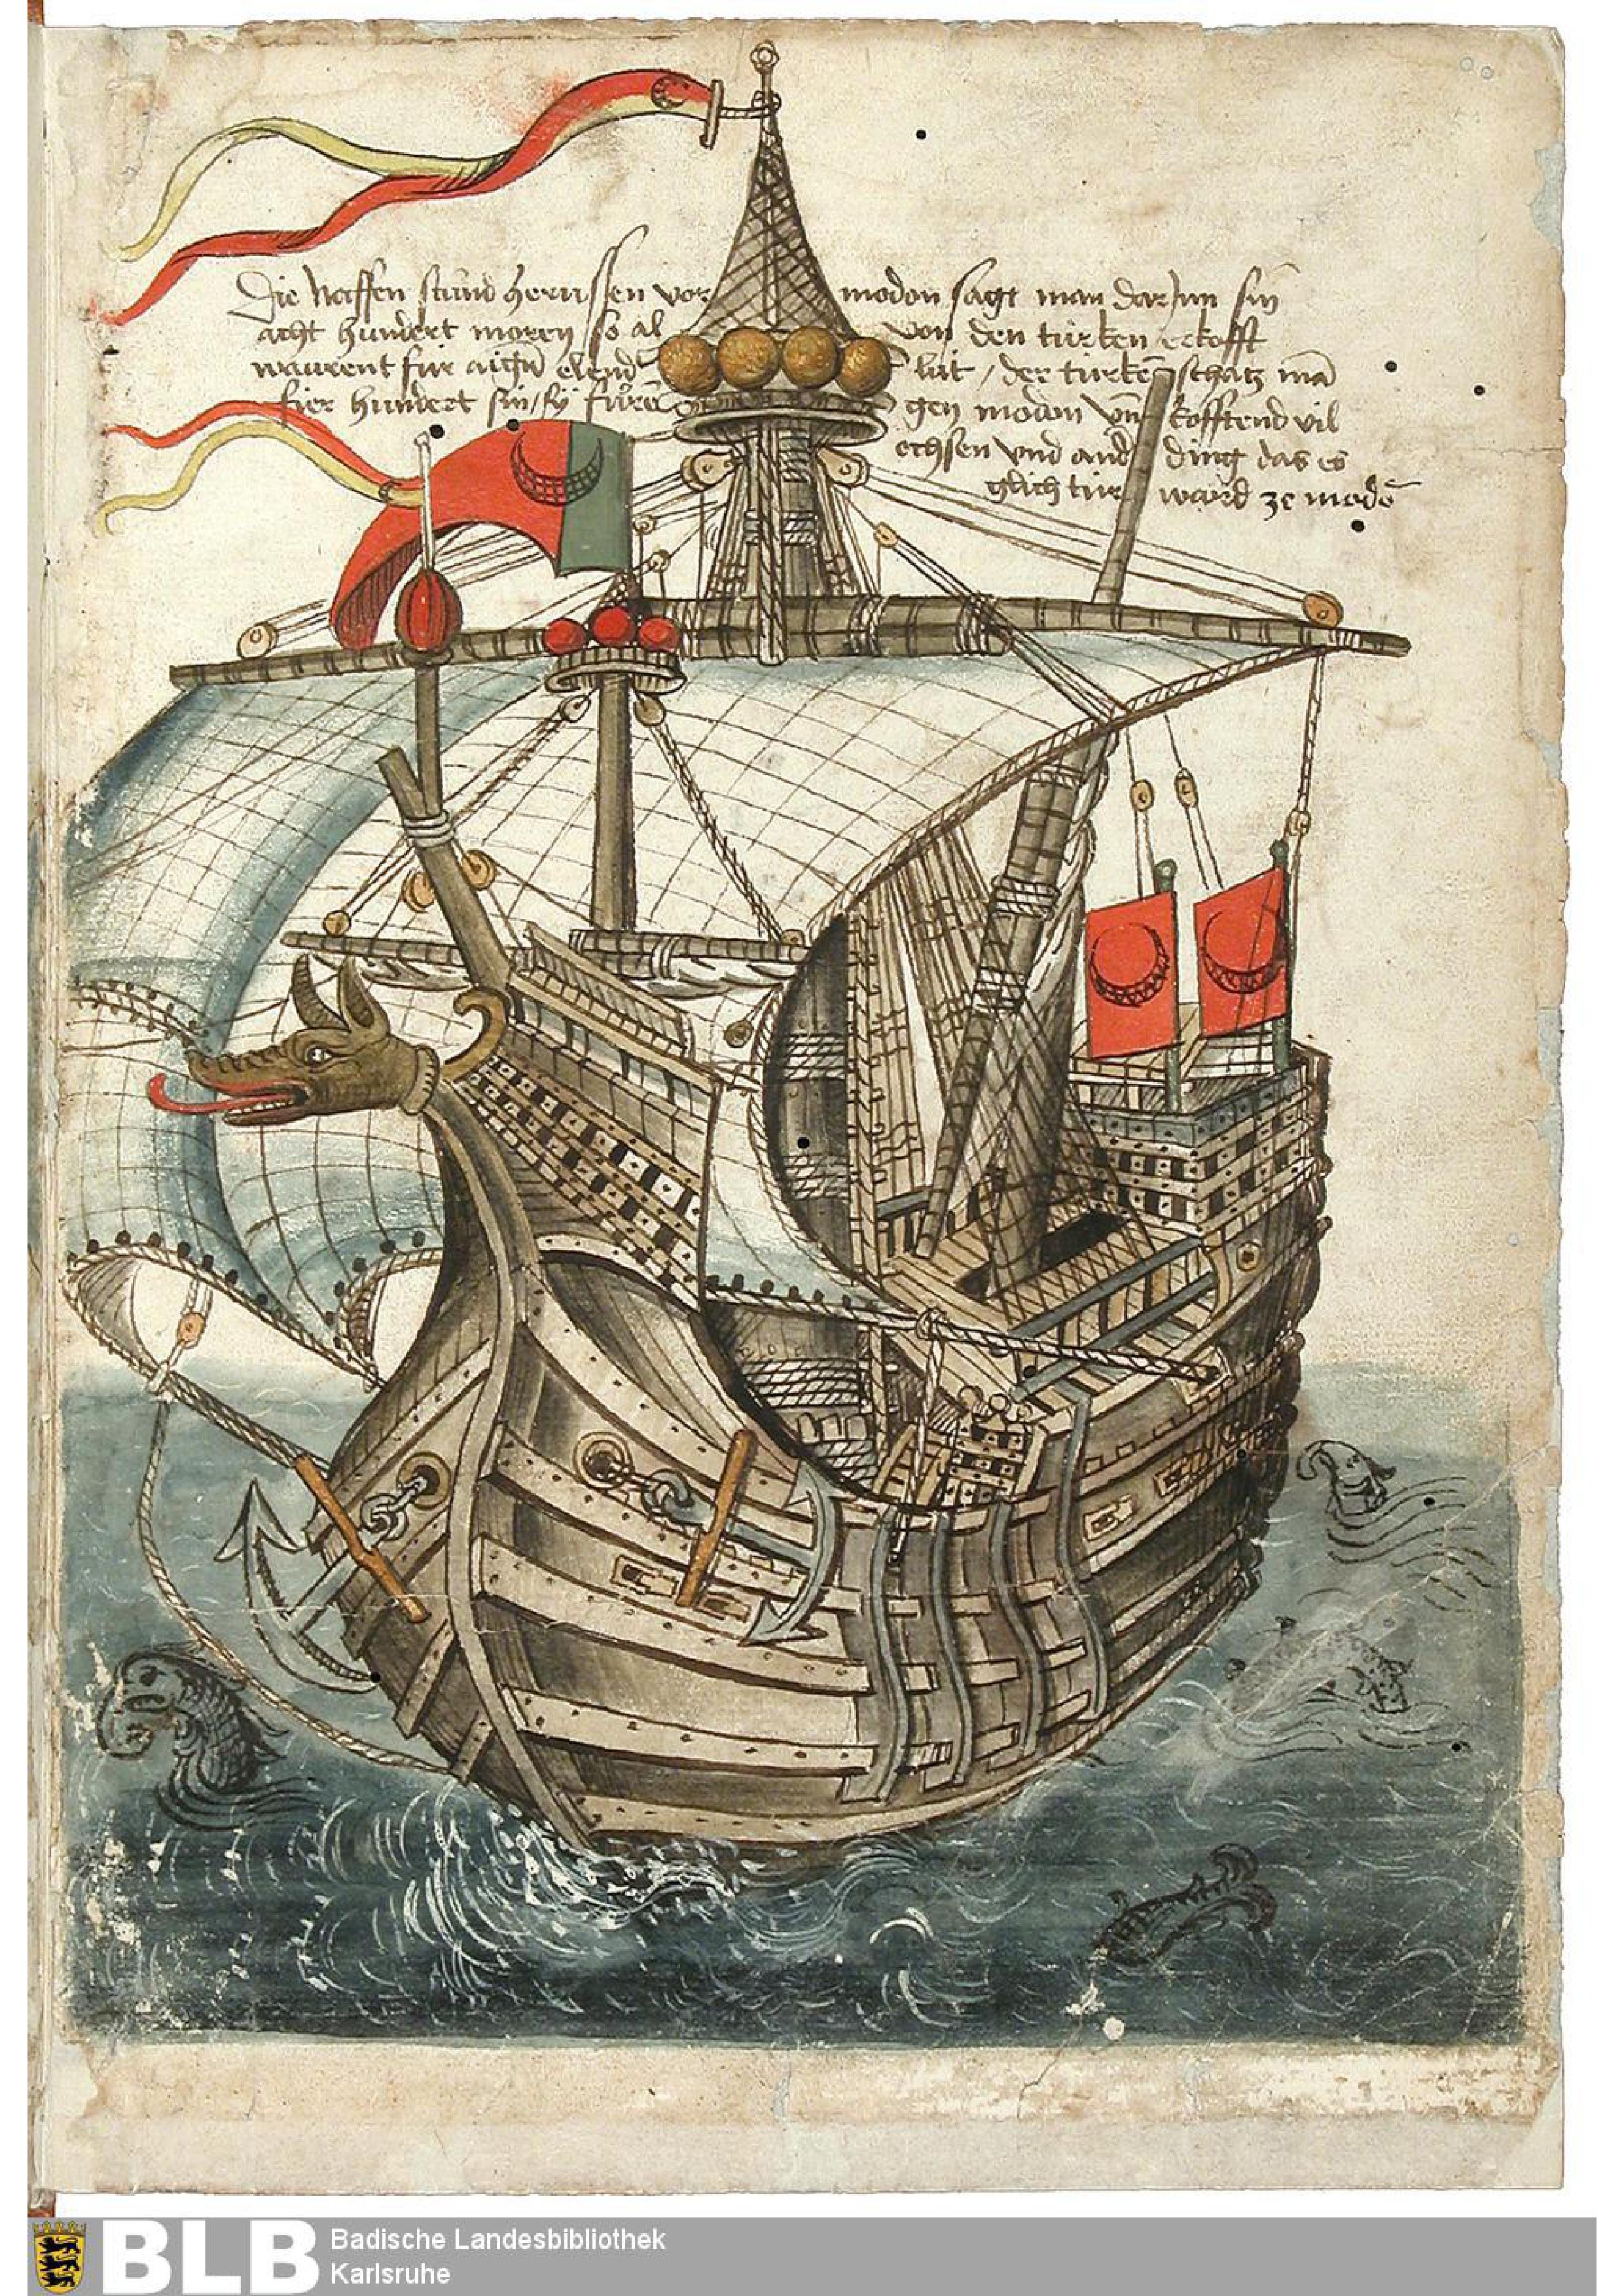 Die Naffen stund herussen vor modon sagt man dar Inn sin
acht hundert moren so al von den türken erkofft
waurent für aigen elend lüt / der türken schatz man
fier hundert sin / sy füren gen modon vnd kofftend vil
ochsen vnd ander ding das es
glich tür ward ze modon
BLB
Badische Landesbibliothek
Karlsruhe